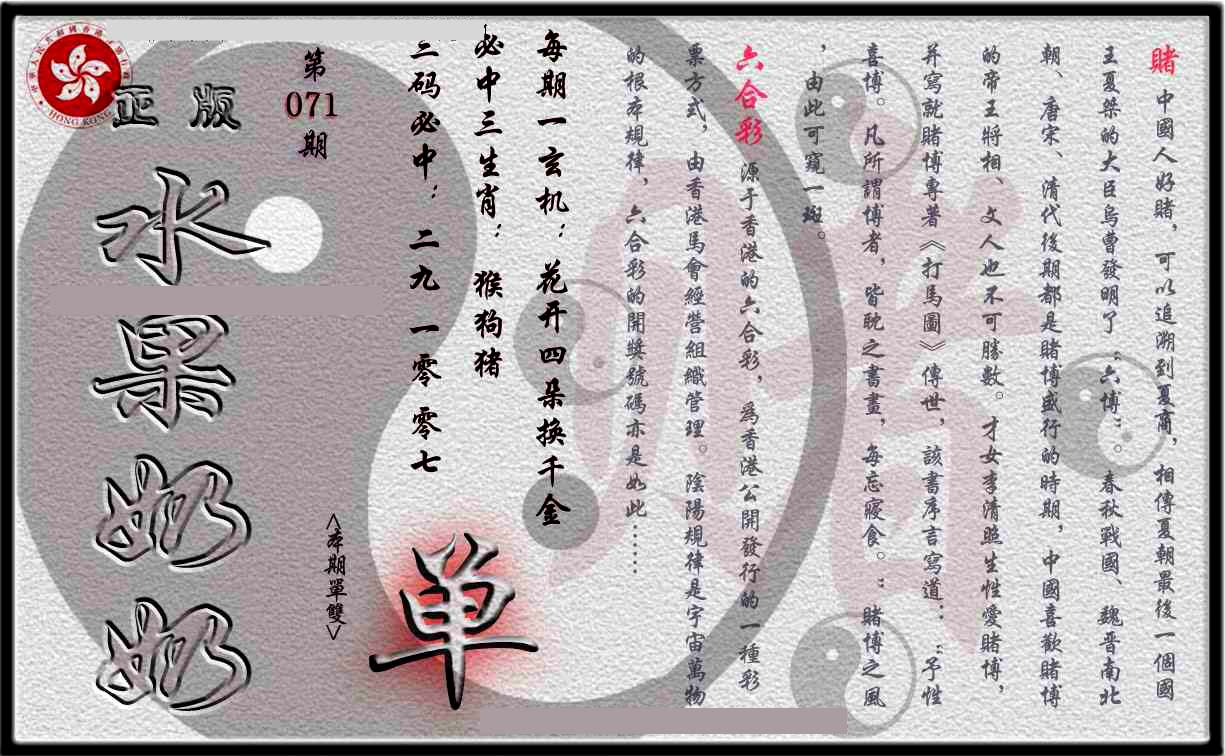 賭 中國人好賭，可以追溯到夏商，相傳夏朝最後一個國
王夏桀的大臣烏曹發明了“六博”。春秋戰國、魏晉南北
朝、唐宋、清代後期都是賭博盛行的時期，中國喜歡賭博
的帝王將相、文人也不可勝數。才女李清照生性愛賭博，
并寫就賭博專著《打馬圖》傳世，該書序言寫道：“予性
喜博。凡所謂博者，皆耽之書畫，每忘寢食。：賭博之風
，由此可窺一斑。
六合彩 源于香港的六合彩，爲香港公開發行的一種彩
票方式，由香港馬會經營組織管理。陰陽規律是宇宙萬物
的根本規律，六合彩的開獎號碼亦是如此……
每期一玄机：花开四朵换千金
必中三生肖：猴狗猪
三码必中：二九 一零 零七
第
071
期
<本期單雙>
单
正版
水果奶奶
HONG KONG